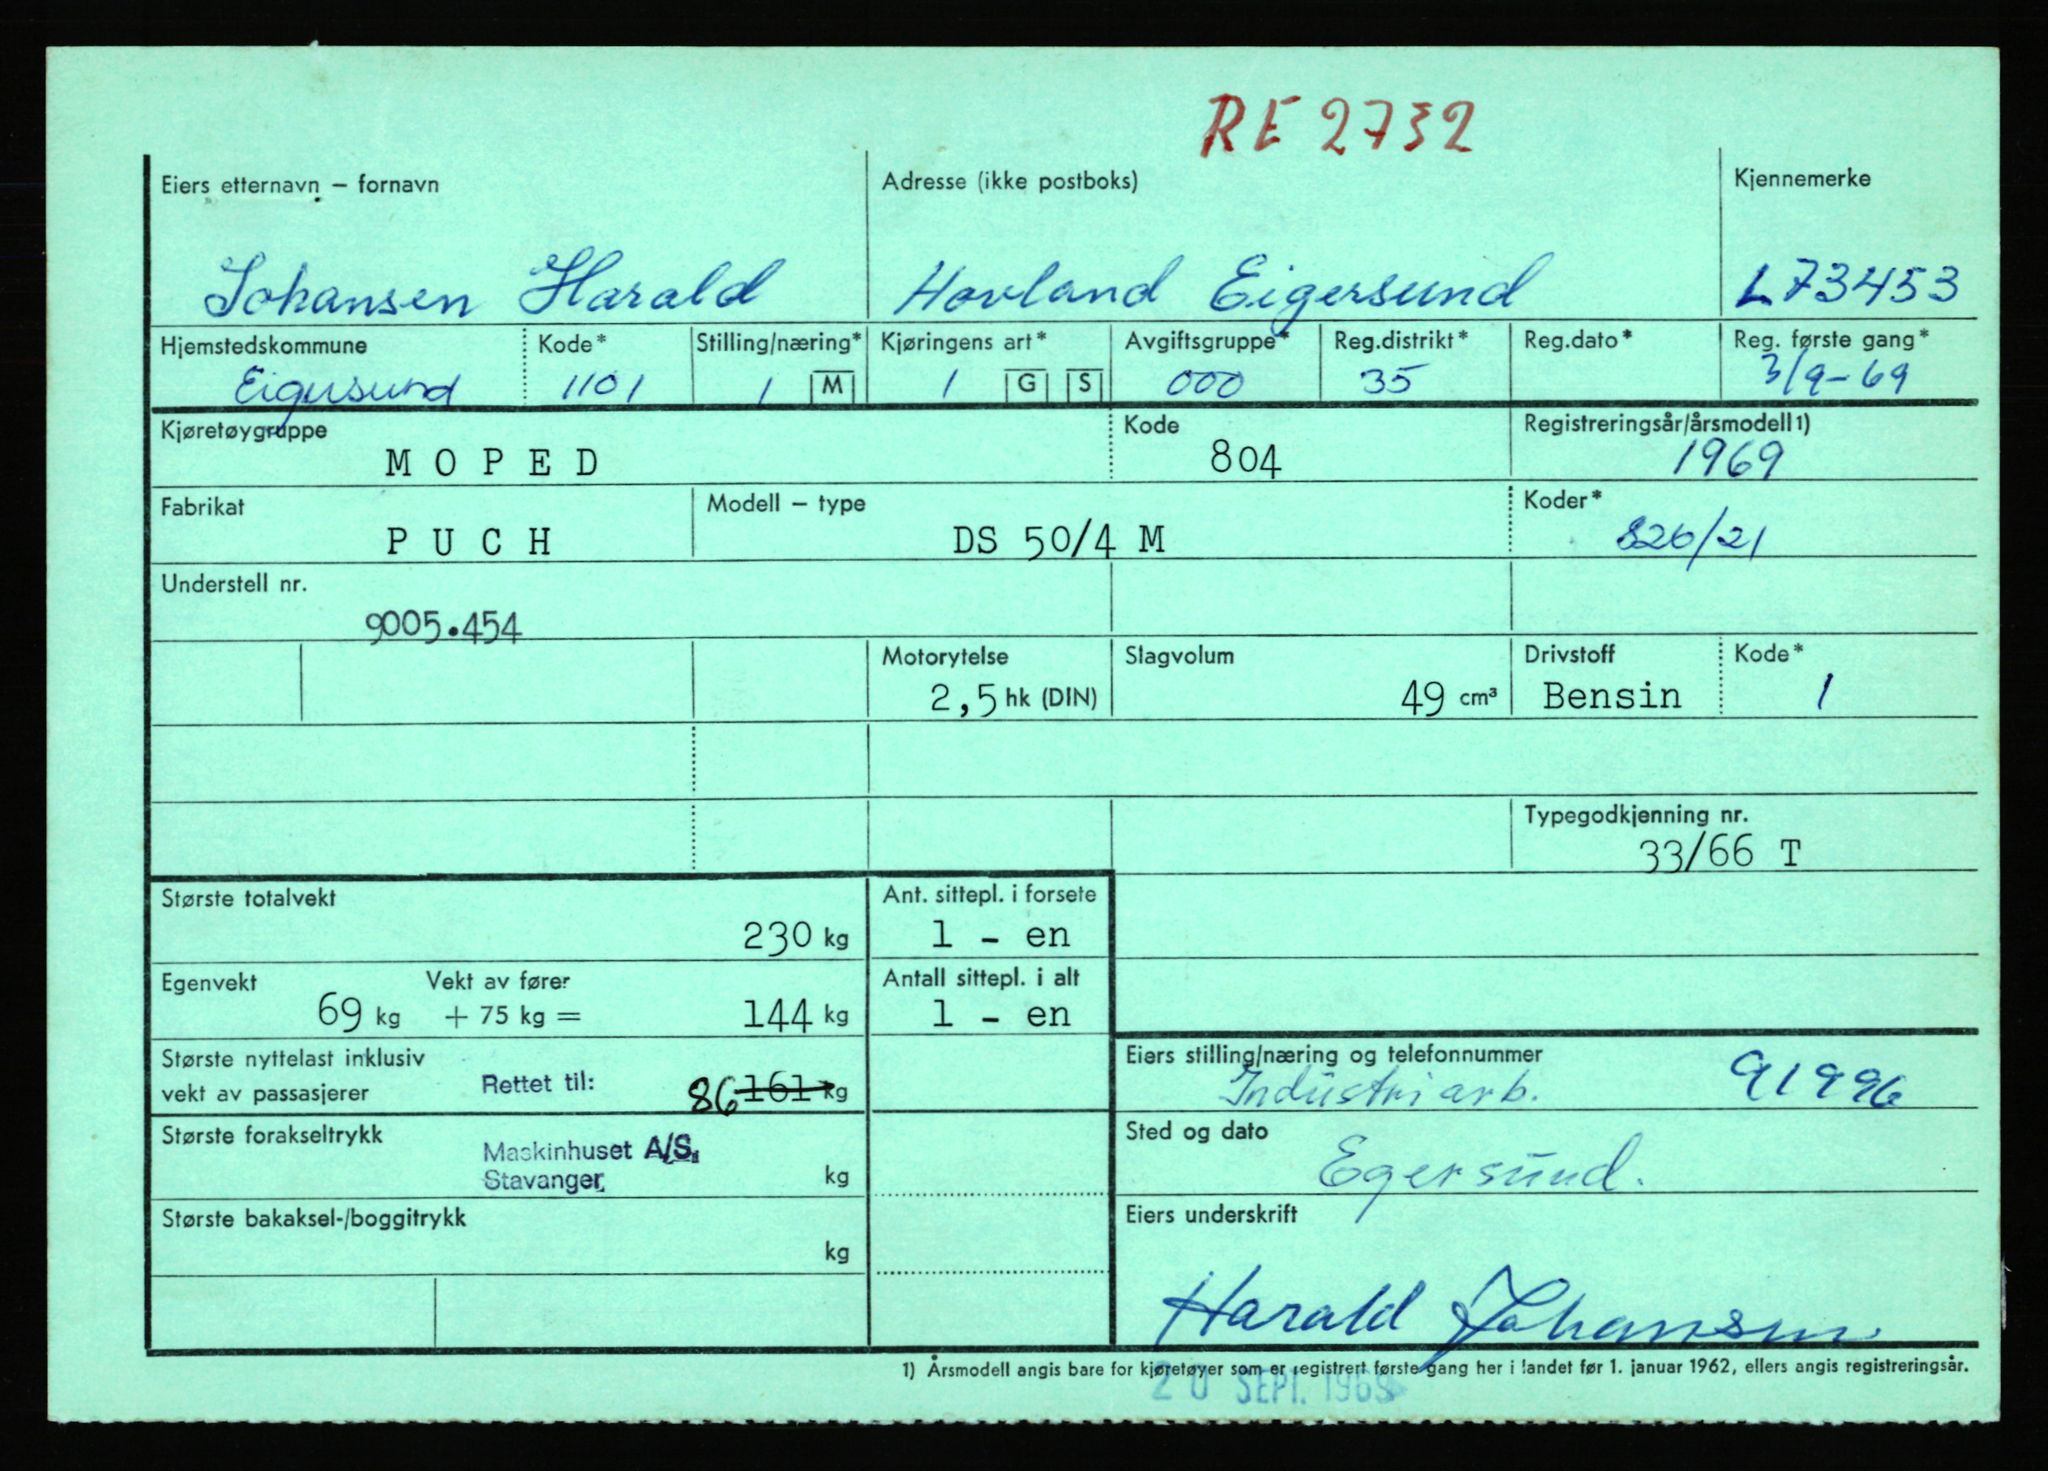 RE 2732
Eiers etternavn – fornavn Adresse (ikke postboks) Kjennemerke
Johansen Harald Hovland Eigersund L73453
Hjemstedskommune Kode* Stilling/næring* Kjøringens art* Avgiftsgruppe* Reg.distrikt* Reg.dato* Reg. første gang*
Eigersund 1101 1 M 1 G S 000 35 3/9-69
Kjøretøygruppe Kode Registreringsår/årsmodell 1)
MOPED 804 1969
Fabrikat Modell – type Koder*
PUCH DS 50/4 M 826/21
Understell nr.
9005.454
Motorytelse Slagvolum Drivstoff Kode*
2,5 hk (DIN) 49 cm³ Bensin 1
Typegodkjenning nr.
33/66 T
Største totalvekt Ant. sittepl. i forsete
230 kg 1 - en
Egenvekt Vekt av fører Antall sittepl. i alt
69 kg + 75 kg = 144 kg 1 - en
Største nyttelast inklusiv Eiers stilling/næring og telefonnummer
vekt av passasjerer Rettet til: 86 161 kg Industriarb. 91996
Største forakseltrykk Maskinhuset A/S. Sted og dato
Stavanger kg Egersund.
Største bakaksel-/boggitrykk Eiers underskrift
kg
Harald Johansen
1) Årsmodell angis bare for kjøretøyer som er registrert første gang her i landet før 1. januar 1962, ellers angis registreringsår.
20 SEPT. 1969